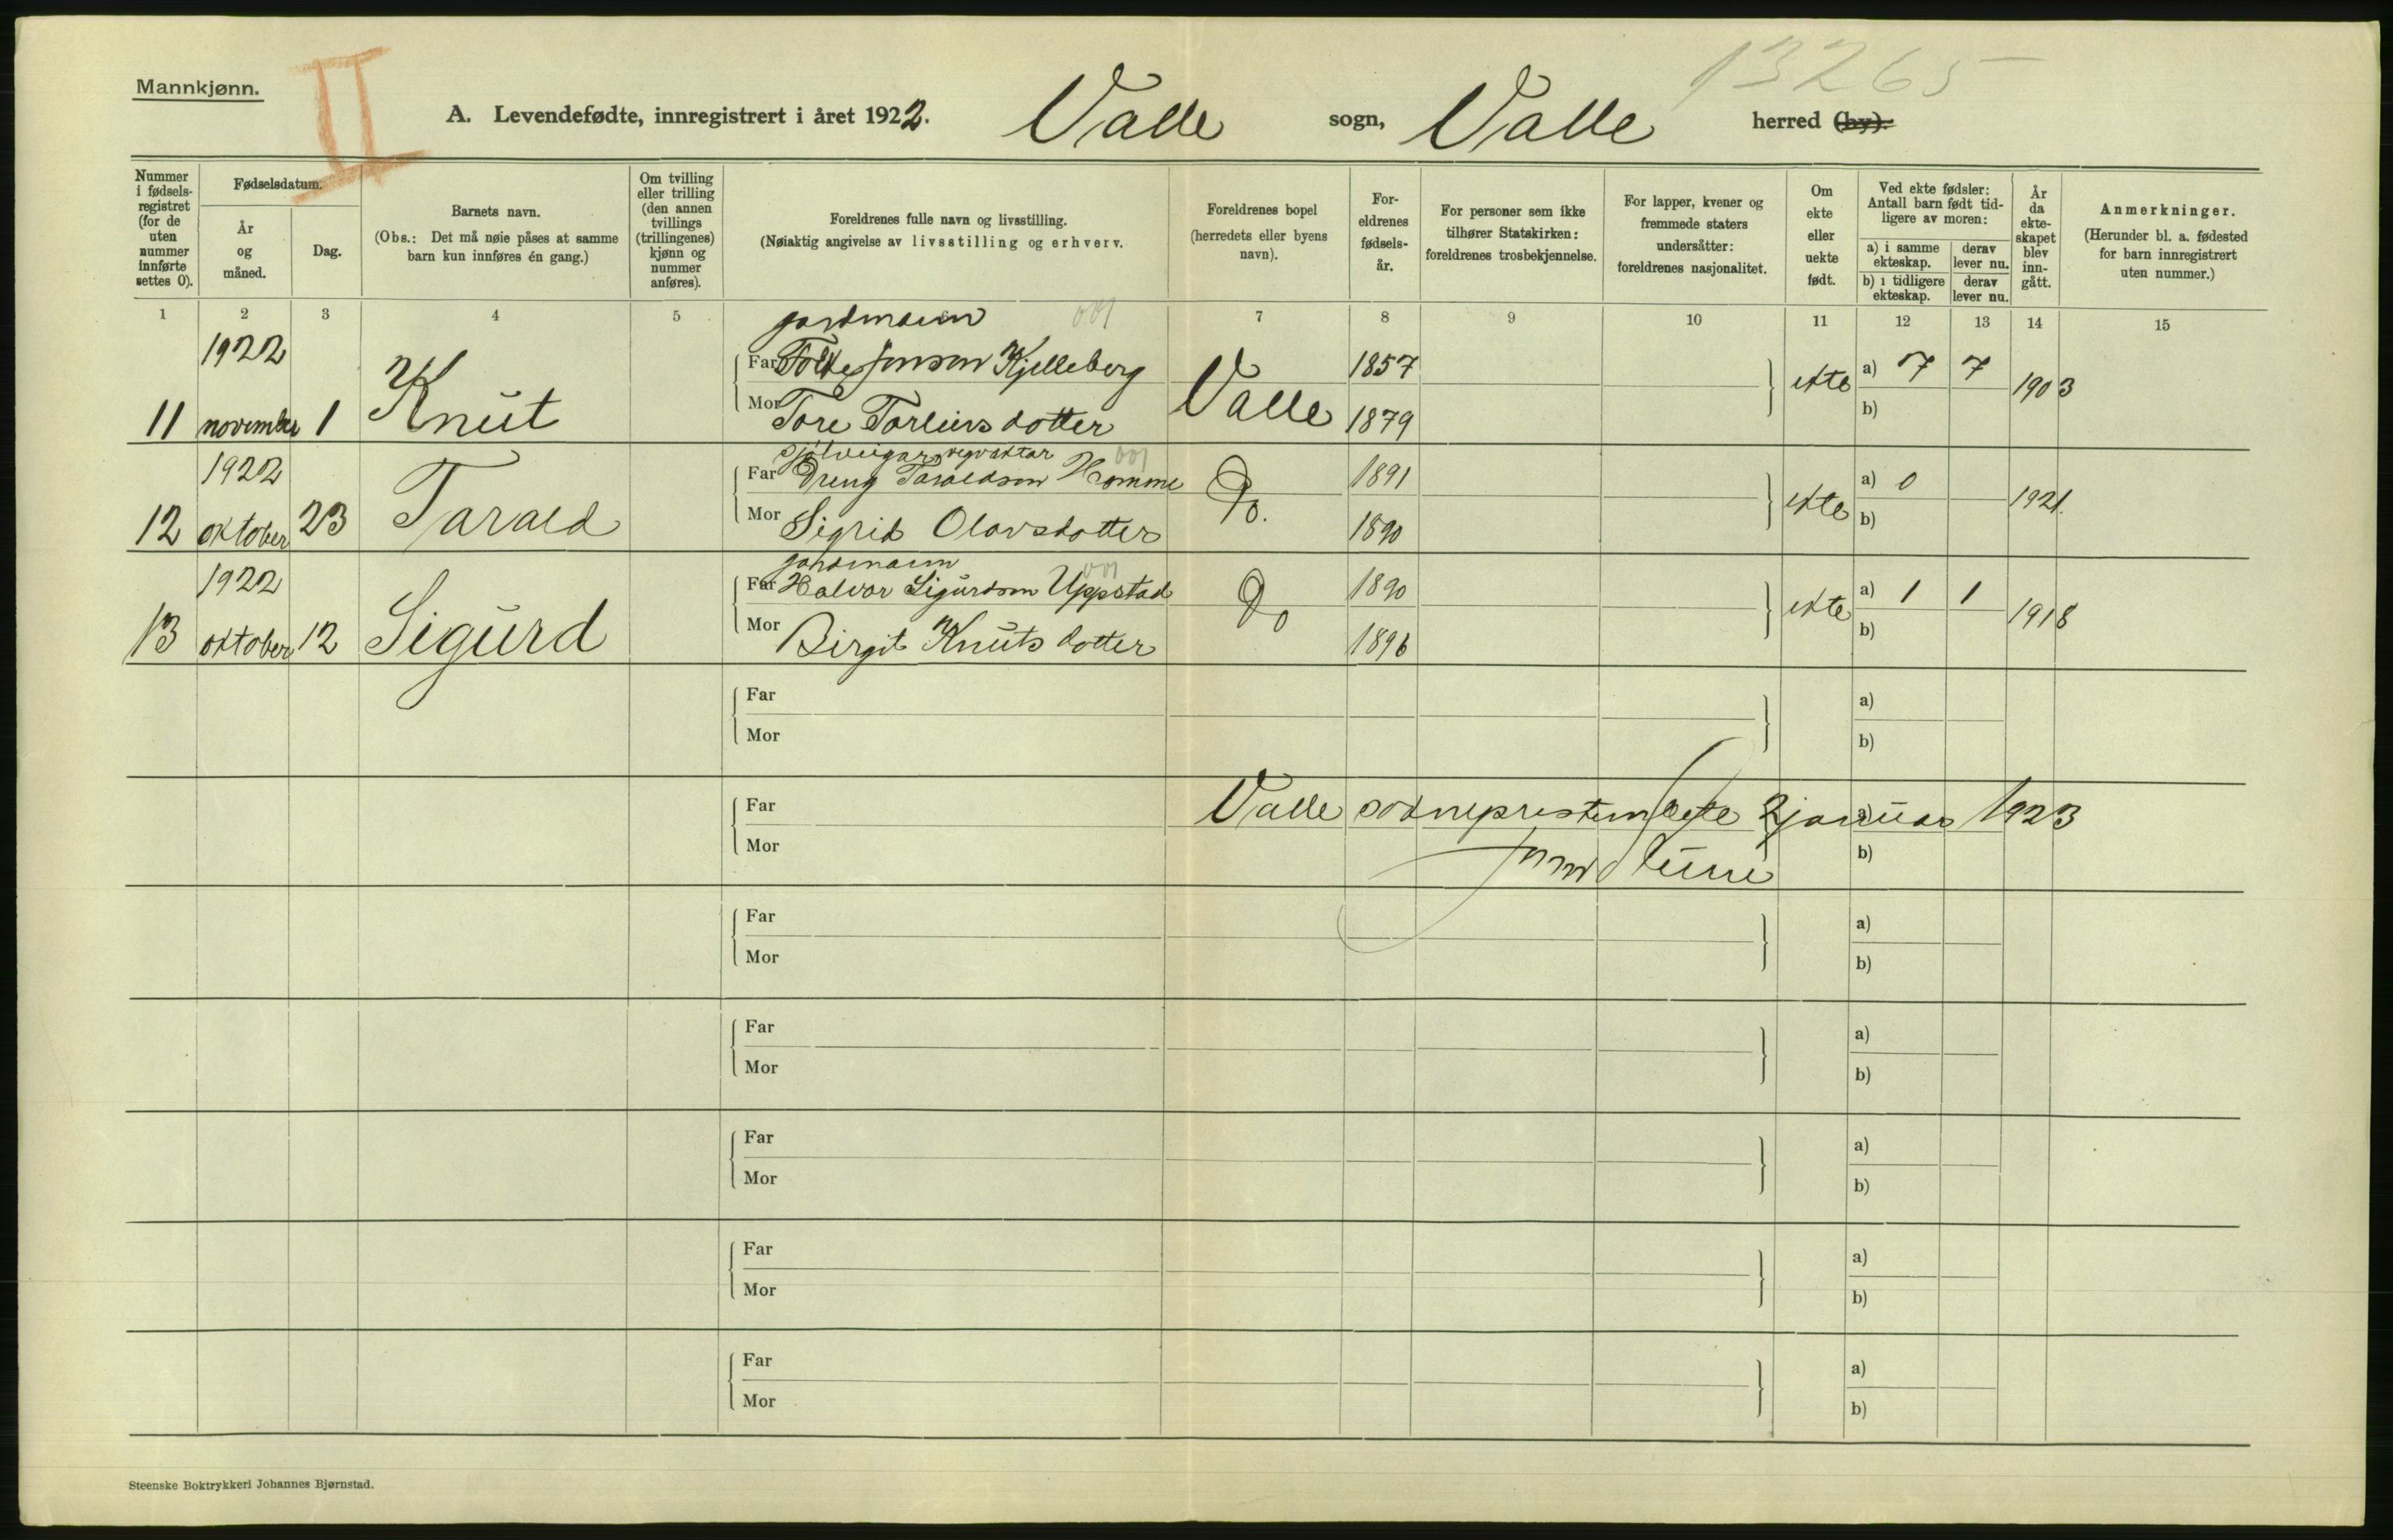 13265
Mannkjønn.
II
A. Levendefødte, innregistrert i året 1922. Valle sogn, Valle herred (by).
Nummer i fødsels-registret (for de uten nummer innførte settes 0).
Fødselsdatum.
År og måned.
Dag.
Barnets navn.
(Obs.: Det må nøie påses at samme barn kun innføres én gang.)
Om tvilling eller trilling (den annen tvillings (trillingenes) kjønn og nummer anføres).
Foreldrenes fulle navn og livsstilling.
(Nøiaktig angivelse av livsstilling og erhverv.
Foreldrenes bopel (herredets eller byens navn).
For-eldrenes fødsels-år.
For personer som ikke tilhører Statskirken: foreldrenes trosbekjennelse.
For lapper, kvener og fremmede staters undersåtter: foreldrenes nasjonalitet.
Om ekte eller uekte født.
Ved ekte fødsler: Antall barn født tid-ligere av moren:
a) i samme ekteskap.
derav lever nu.
b) i tidligere ekteskap.
derav lever nu.
År da ekte-skapet blev inn-gått.
Anmerkninger.
(Herunder bl. a. fødested for barn innregistrert uten nummer.)
1 2 3 4 5 7 8 9 10 11 12 13 14 15
gardmann 001
1922 Far Folke Jonson Kjelleberg 1857 a) 7 7
11 november 1 Knut Mor Tore Torleivsdotter Valle 1879 ekte b) 1903
sjølveigar 001
1922 Far Dreng Taraldson Homme 1891 a) 0
12 oktober 23 Tarald Mor Sigrid Olavsdotter Do. 1890 ekte b) 1921.
gardmann 001
1922 Far Halvor Sigurdson Uppstad 1890 a) 1 1
13 oktober 12 Sigurd Mor Birgit Knutsdotter Do 1896 ekte b) 1918
Far a)
Mor b)
Far Valle sokneprestembete 2 januar 1923 a)
Mor b)
Far a)
Mor b)
Far a)
Mor b)
Far a)
Mor b)
Far a)
Mor b)
Far a)
Mor b)
Steenske Boktrykkeri Johannes Bjørnstad.